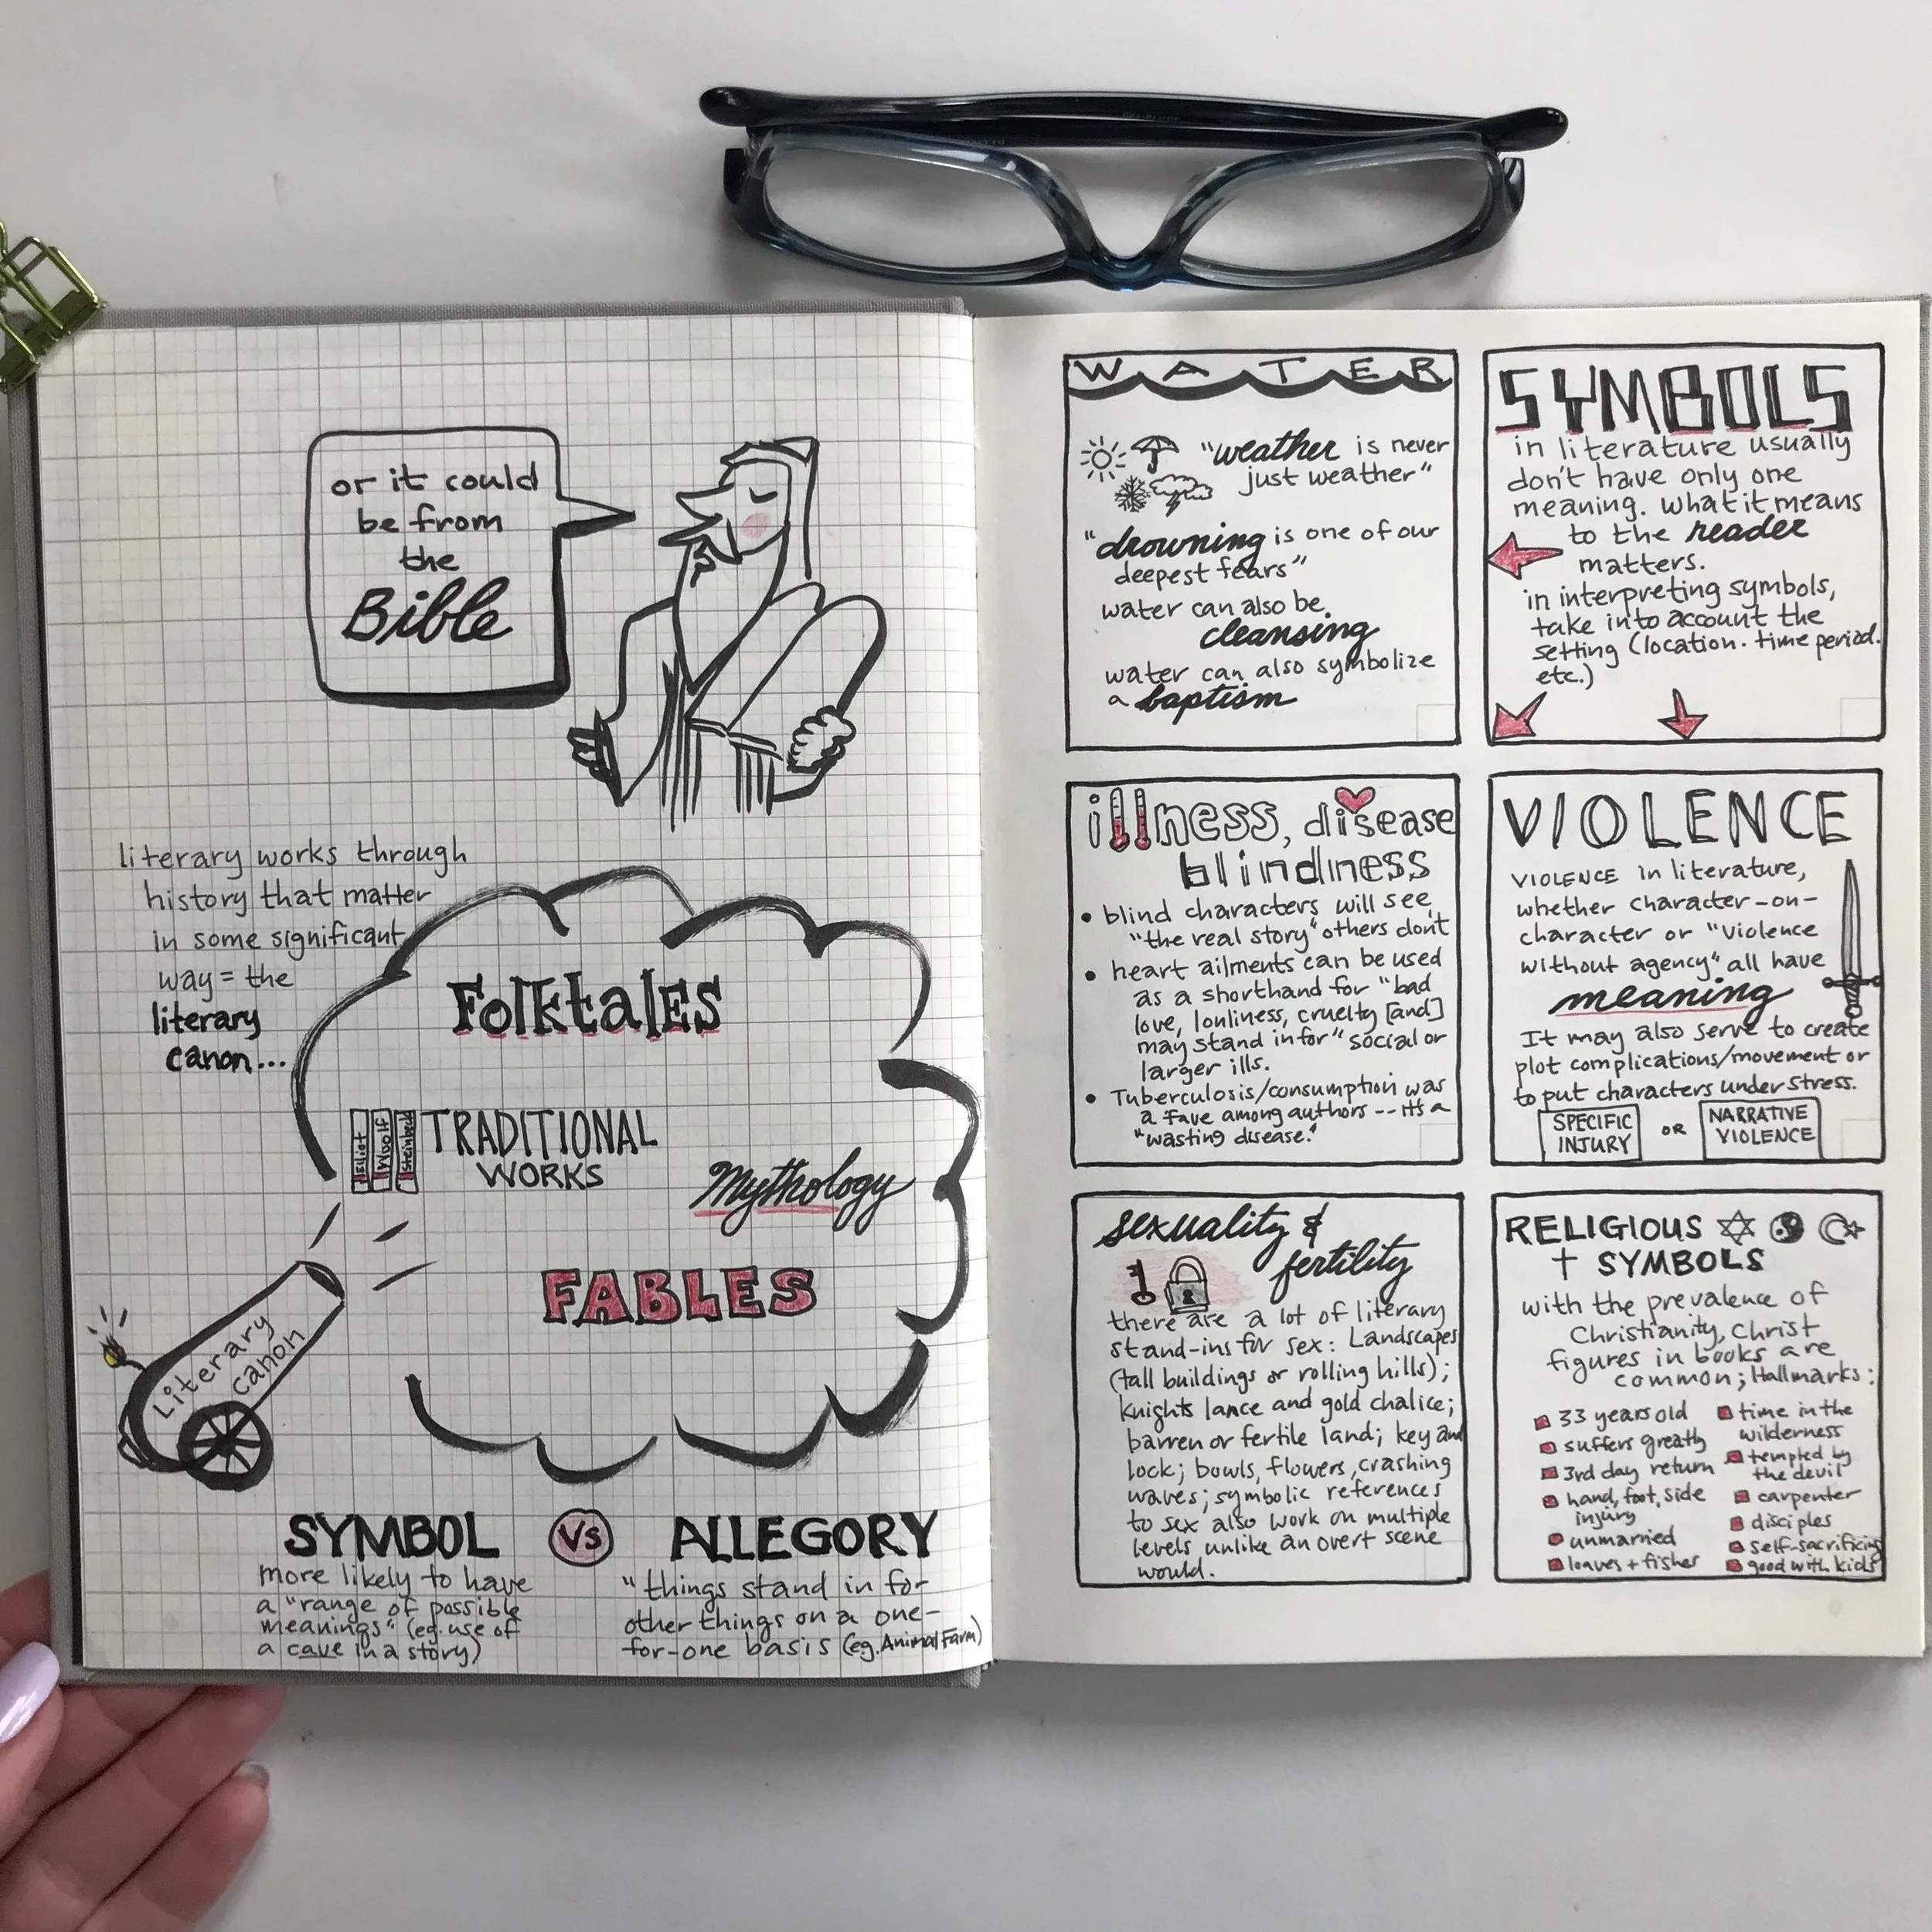 or it could
be from
the
Bible
literary works through
history that matter
in some significant
way = the
literary
canon...
Folktales
Elliot
Woolf
Steinbeck
TRADITIONAL
WORKS
Mythology
FABLES
Literary
canon
SYMBOL
more likely to have
a "range of possible
meanings" (eg. use of
a cave in a story)
Vs
ALLEGORY
"things stand in for
other things on a one-
for-one basis (eg. Animal Farm)
WATER
"weather is never
just weather"
"drowning is one of our
deepest fears"
water can also be
cleansing
water can also symbolize
a baptism
SYMBOLS
in literature usually
don't have only one
meaning. What it means
to the reader
matters.
in interpreting symbols,
take into account the
setting (location. time period.
etc.)
illness, disease
blindness
• blind characters will see
"the real story" others don't
• heart ailments can be used
as a shorthand for "bad
love, lonliness, cruelty [and]
may stand in for "social or
larger ills.
• Tuberculosis/consumption was
a fave among authors -- it's a
"wasting disease."
VIOLENCE
VIOLENCE in literature,
whether character-on-
character or "violence
without agency" all have
meaning
It may also serve to create
plot complications/movement or
to put characters under stress.
SPECIFIC
INJURY
OR
NARRATIVE
VIOLENCE
sexuality &
fertility
there are a lot of literary
stand-ins for sex: Landscapes
(tall buildings or rolling hills);
Knights lance and gold chalice;
barren or fertile land; key and
lock; bowls, flowers, crashing
waves; symbolic references
to sex also work on multiple
levels unlike an overt scene
would.
RELIGIOUS
SYMBOLS
with the prevalence of
Christianity, Christ
figures in books are
common; Hallmarks:
33 years old
suffers greatly
3rd day return
hand, foot, side
injury
unmarried
loaves + fishes
time in the
wilderness
tempted by
the devil
carpenter
disciples
self-sacrificing
good with kids